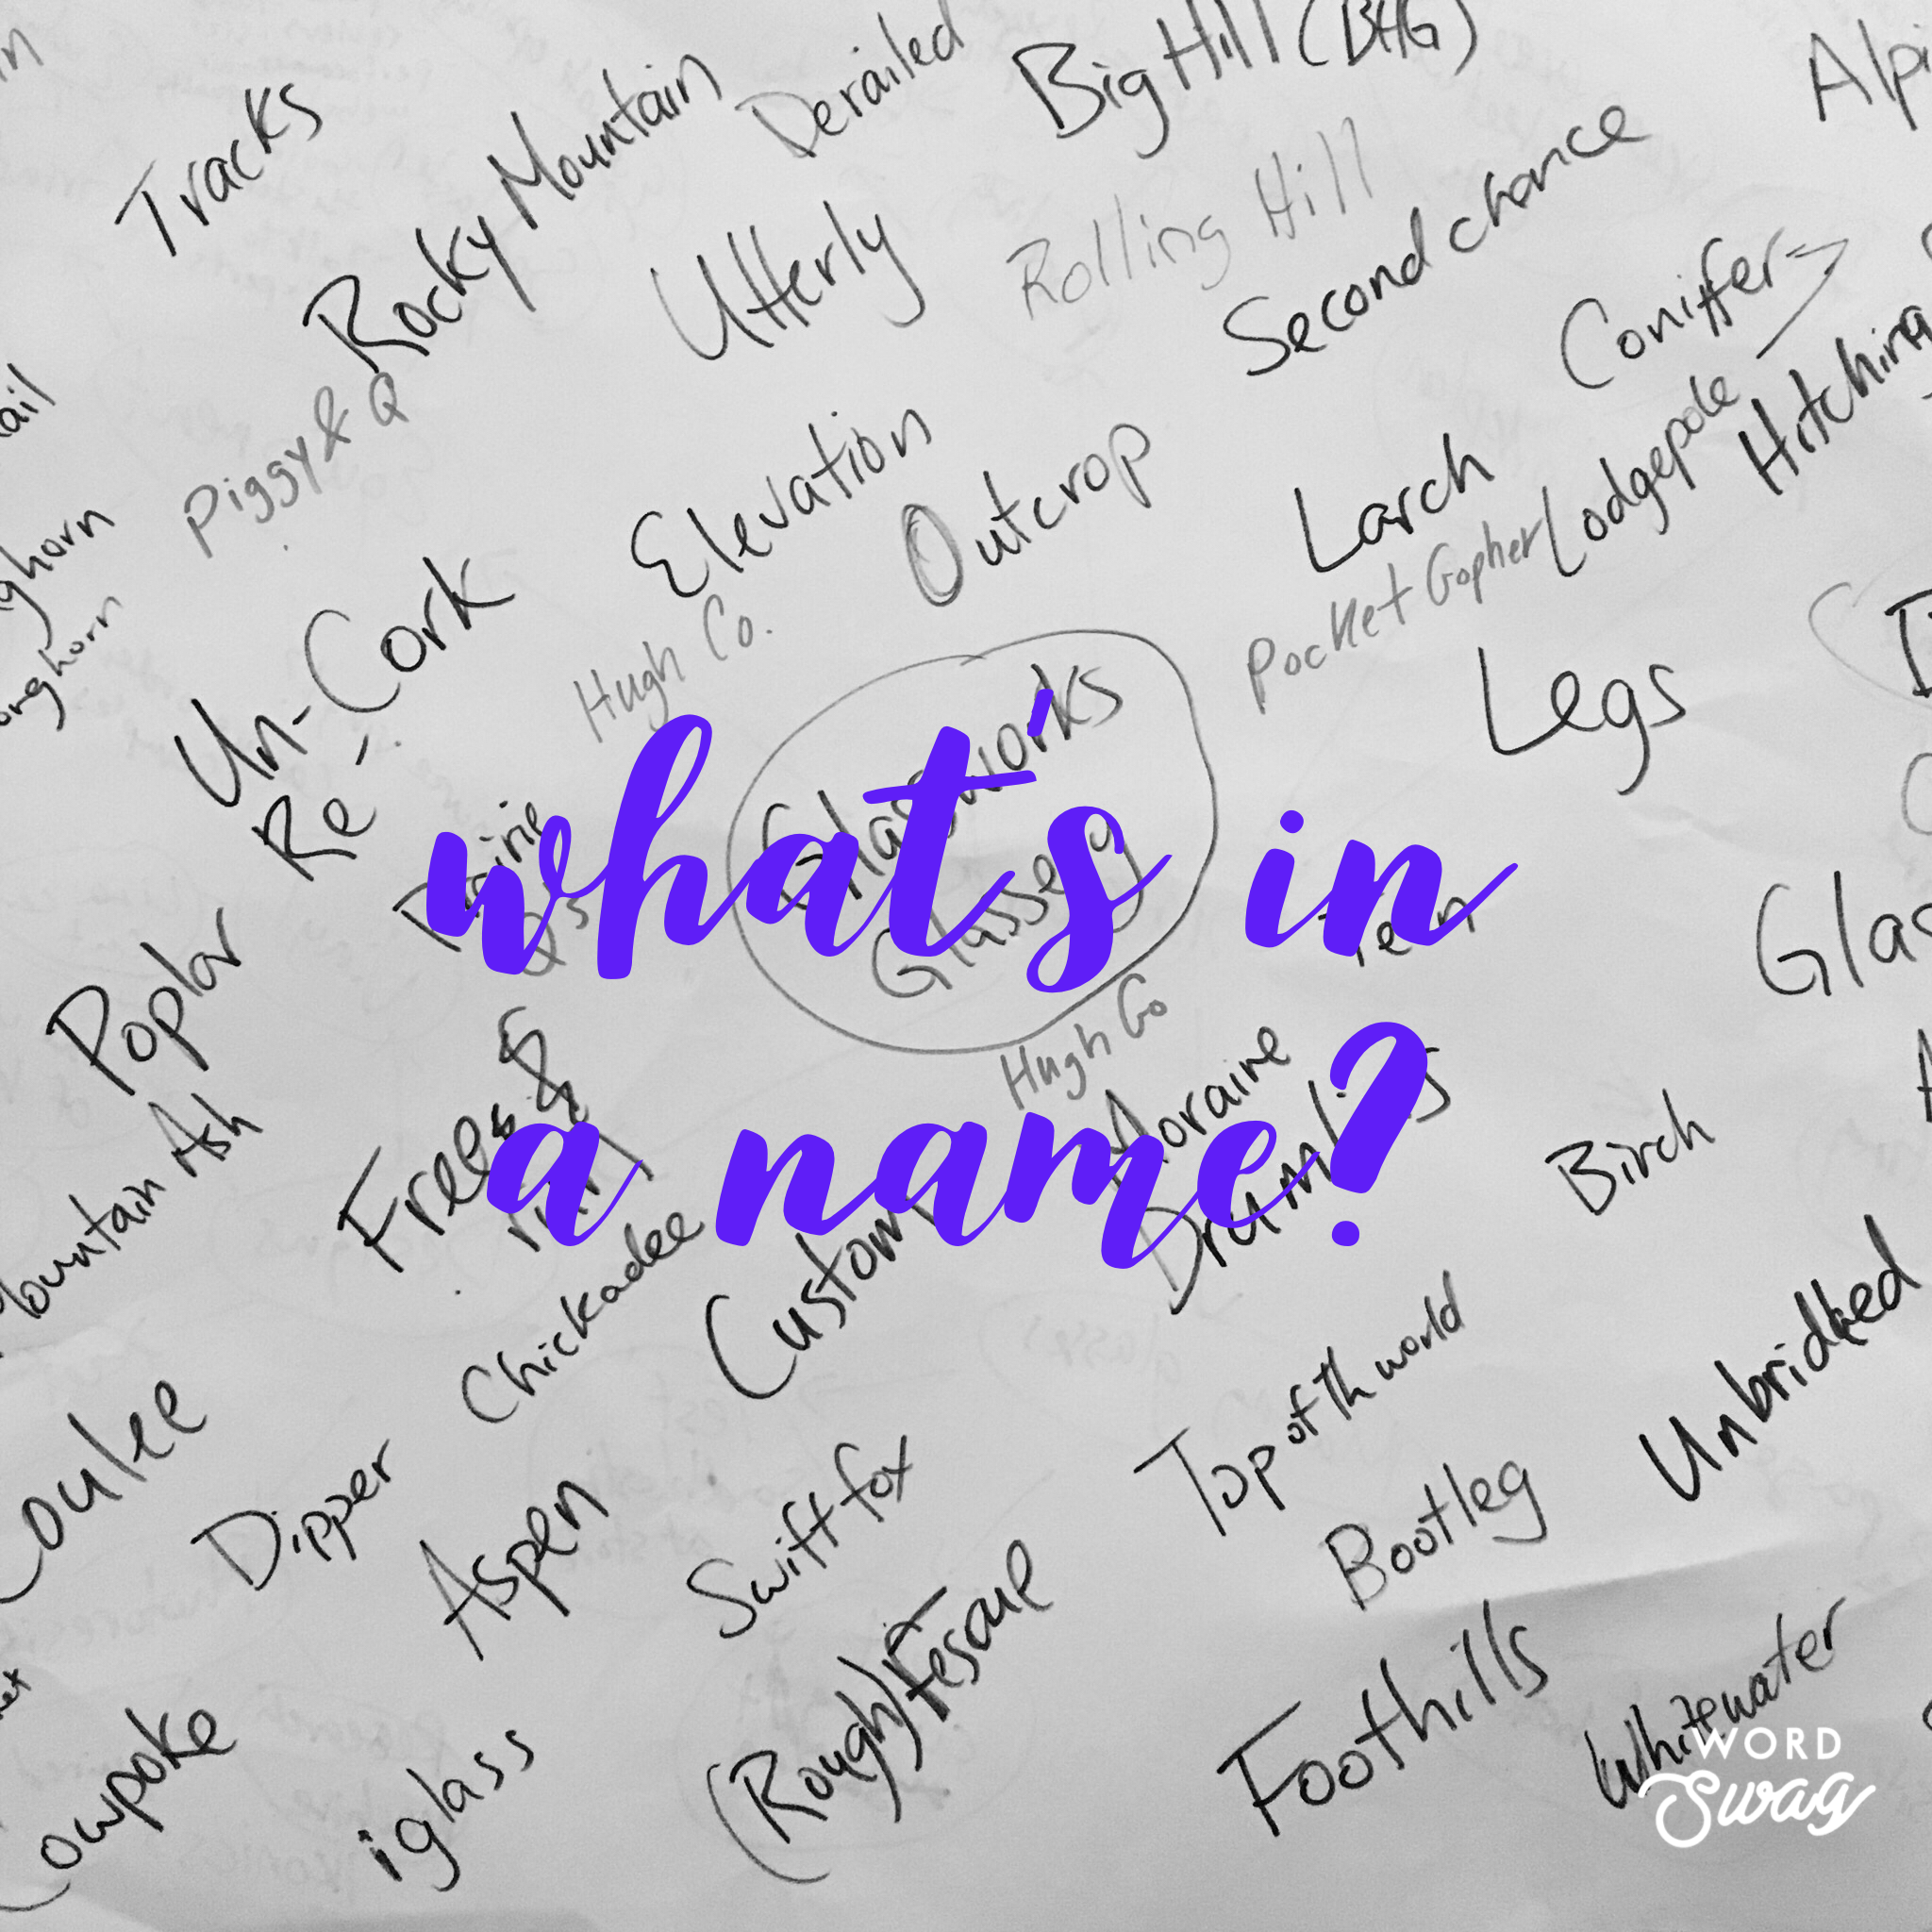 Tracks
Rocky Mountain
Derailed
Big Hill (BHG)
Utterly
Rolling Hill
Second chance
Coniffer
Piggy & Q
Elevation
Outcrop
Larch
Lodgepole
Hitching
Pocket Gopher
Un-Cork
Re-
Hugh Co.
Glassworks
Glassery
Legs
what's in
a name?
Poplar
Hugh Co
Moraine
Drumlins
Birch
Ash
Free &
Chickadee
Custom
Top of th world
Unbridled
Dipper
Aspen
Swift fox
Bootleg
(Rough) Fescue
Foothills
Whitewater
iglass
WORD
Swag